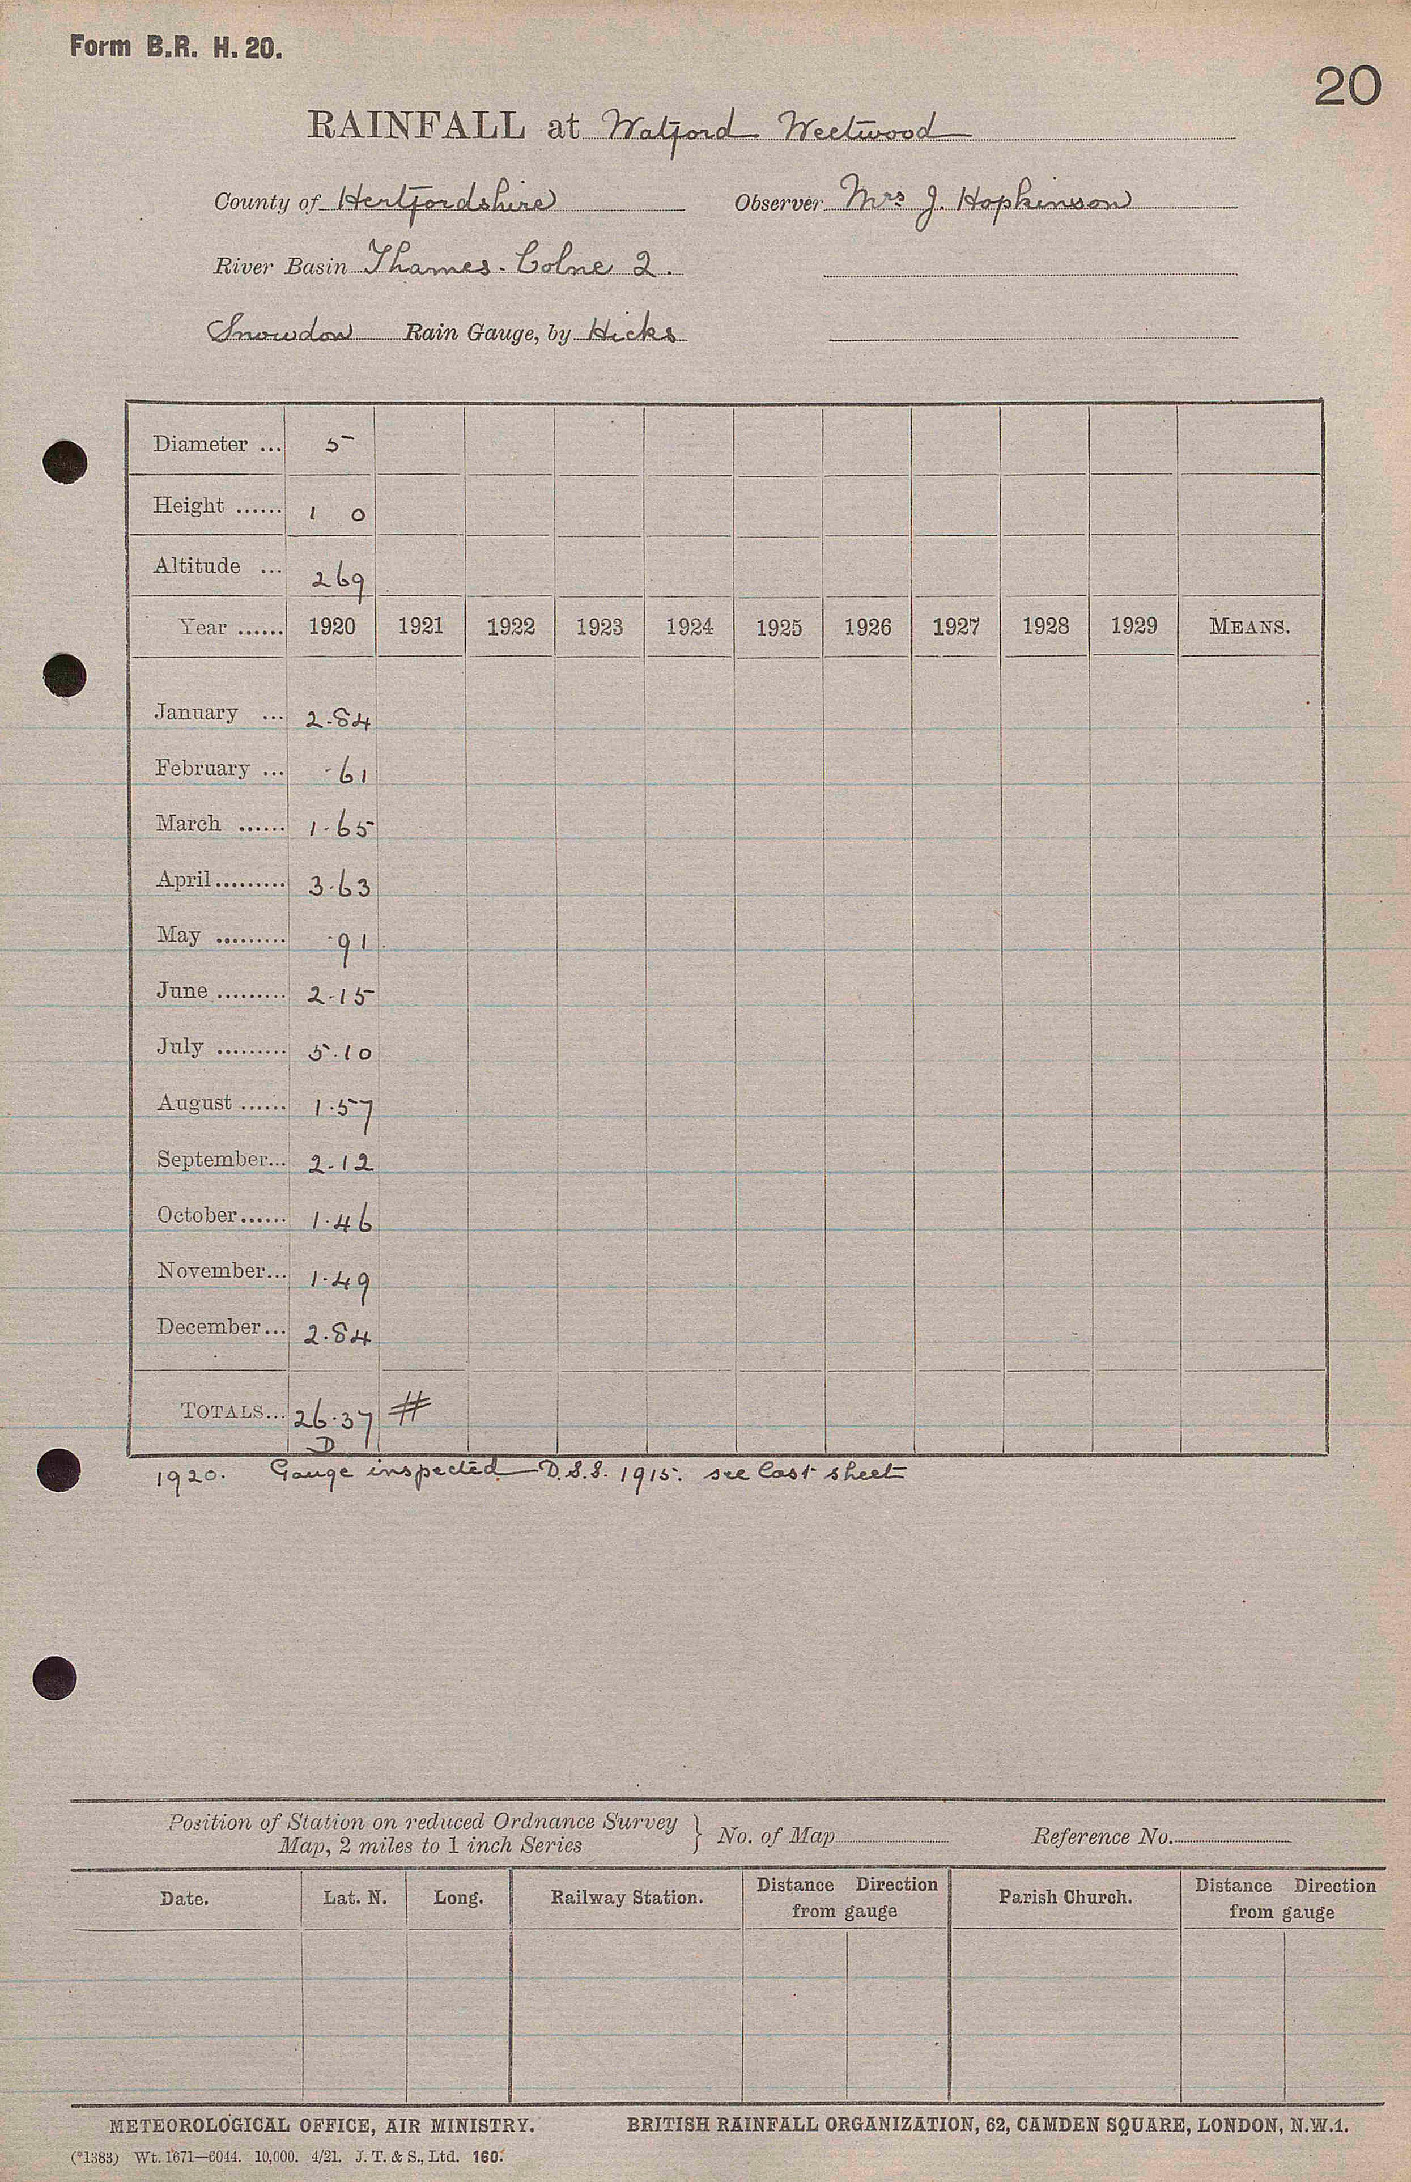 Form B.R. H. 20.
20
RAINFALL at Watford Weetwood
County of Hertfordshire Observer Mrs J. Hopkinson
River Basin Thames. Colne 2.
Snowdon Rain Gauge, by Hicks
Diameter ... 5
Height ...... 1 0
Altitude ... 269
Year ...... 1920 1921 1922 1923 1924 1925 1926 1927 1928 1929 MEANS.
January ... 2.84
February ... .61
March ...... 1.65
April......... 3.63
May ......... .91
June ......... 2.15
July ......... 5.10
August ...... 1.57
September... 2.12
October...... 1.46
November... 1.49
December... 2.84
TOTALS... 26.37 #
D
1920. Gauge inspected D.S.S. 1915. see last sheet
Position of Station on reduced Ordnance Survey
Map, 2 miles to 1 inch Series } No. of Map Reference No.
Date. Lat. N. Long. Railway Station. Distance Direction from gauge Parish Church. Distance Direction from gauge
METEOROLOGICAL OFFICE, AIR MINISTRY. BRITISH RAINFALL ORGANIZATION, 62, CAMDEN SQUARE, LONDON, N.W.1.
(*1383) Wt. 1671—6044. 10,000. 4/21. J. T. & S., Ltd. 160.